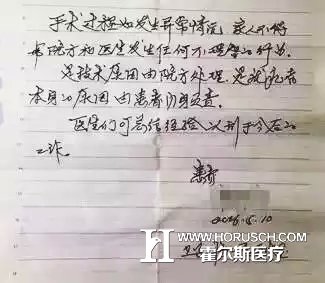 手术过程如发生异常情况 家人不得
与院方和医生发生任何不理智的行为.
是技术原因由院方处理. 是我患者
本身的原因由患者自身负责.
医生们可总结经验 以利于今后的
工作.
患者
5.10
WWW.HORUSCH.COM
霍尔斯医疗